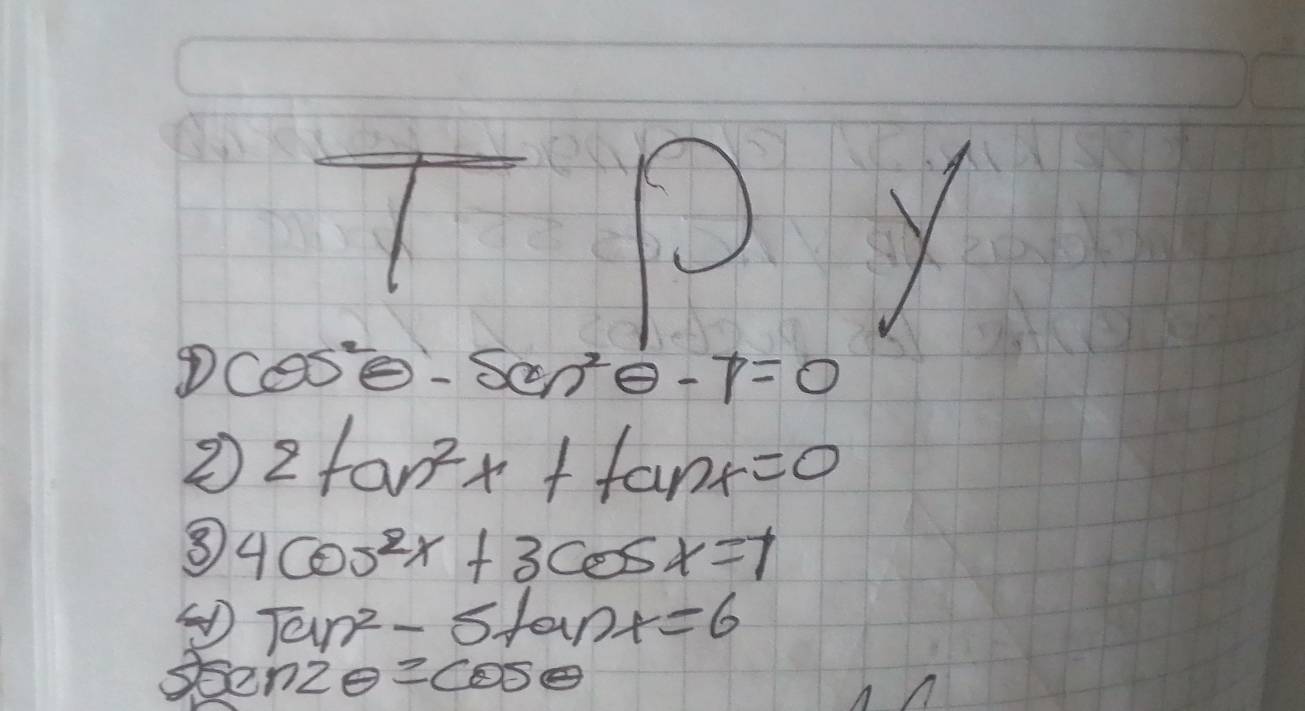 T P Y
1) cos²θ - Sen²θ - 1 = 0
2) 2 tan²x + tanx = 0
3) 4 cos²x + 3 cosx = 1
4) Tan² - 5 tanx = 6
5) Sen2θ = cosθ